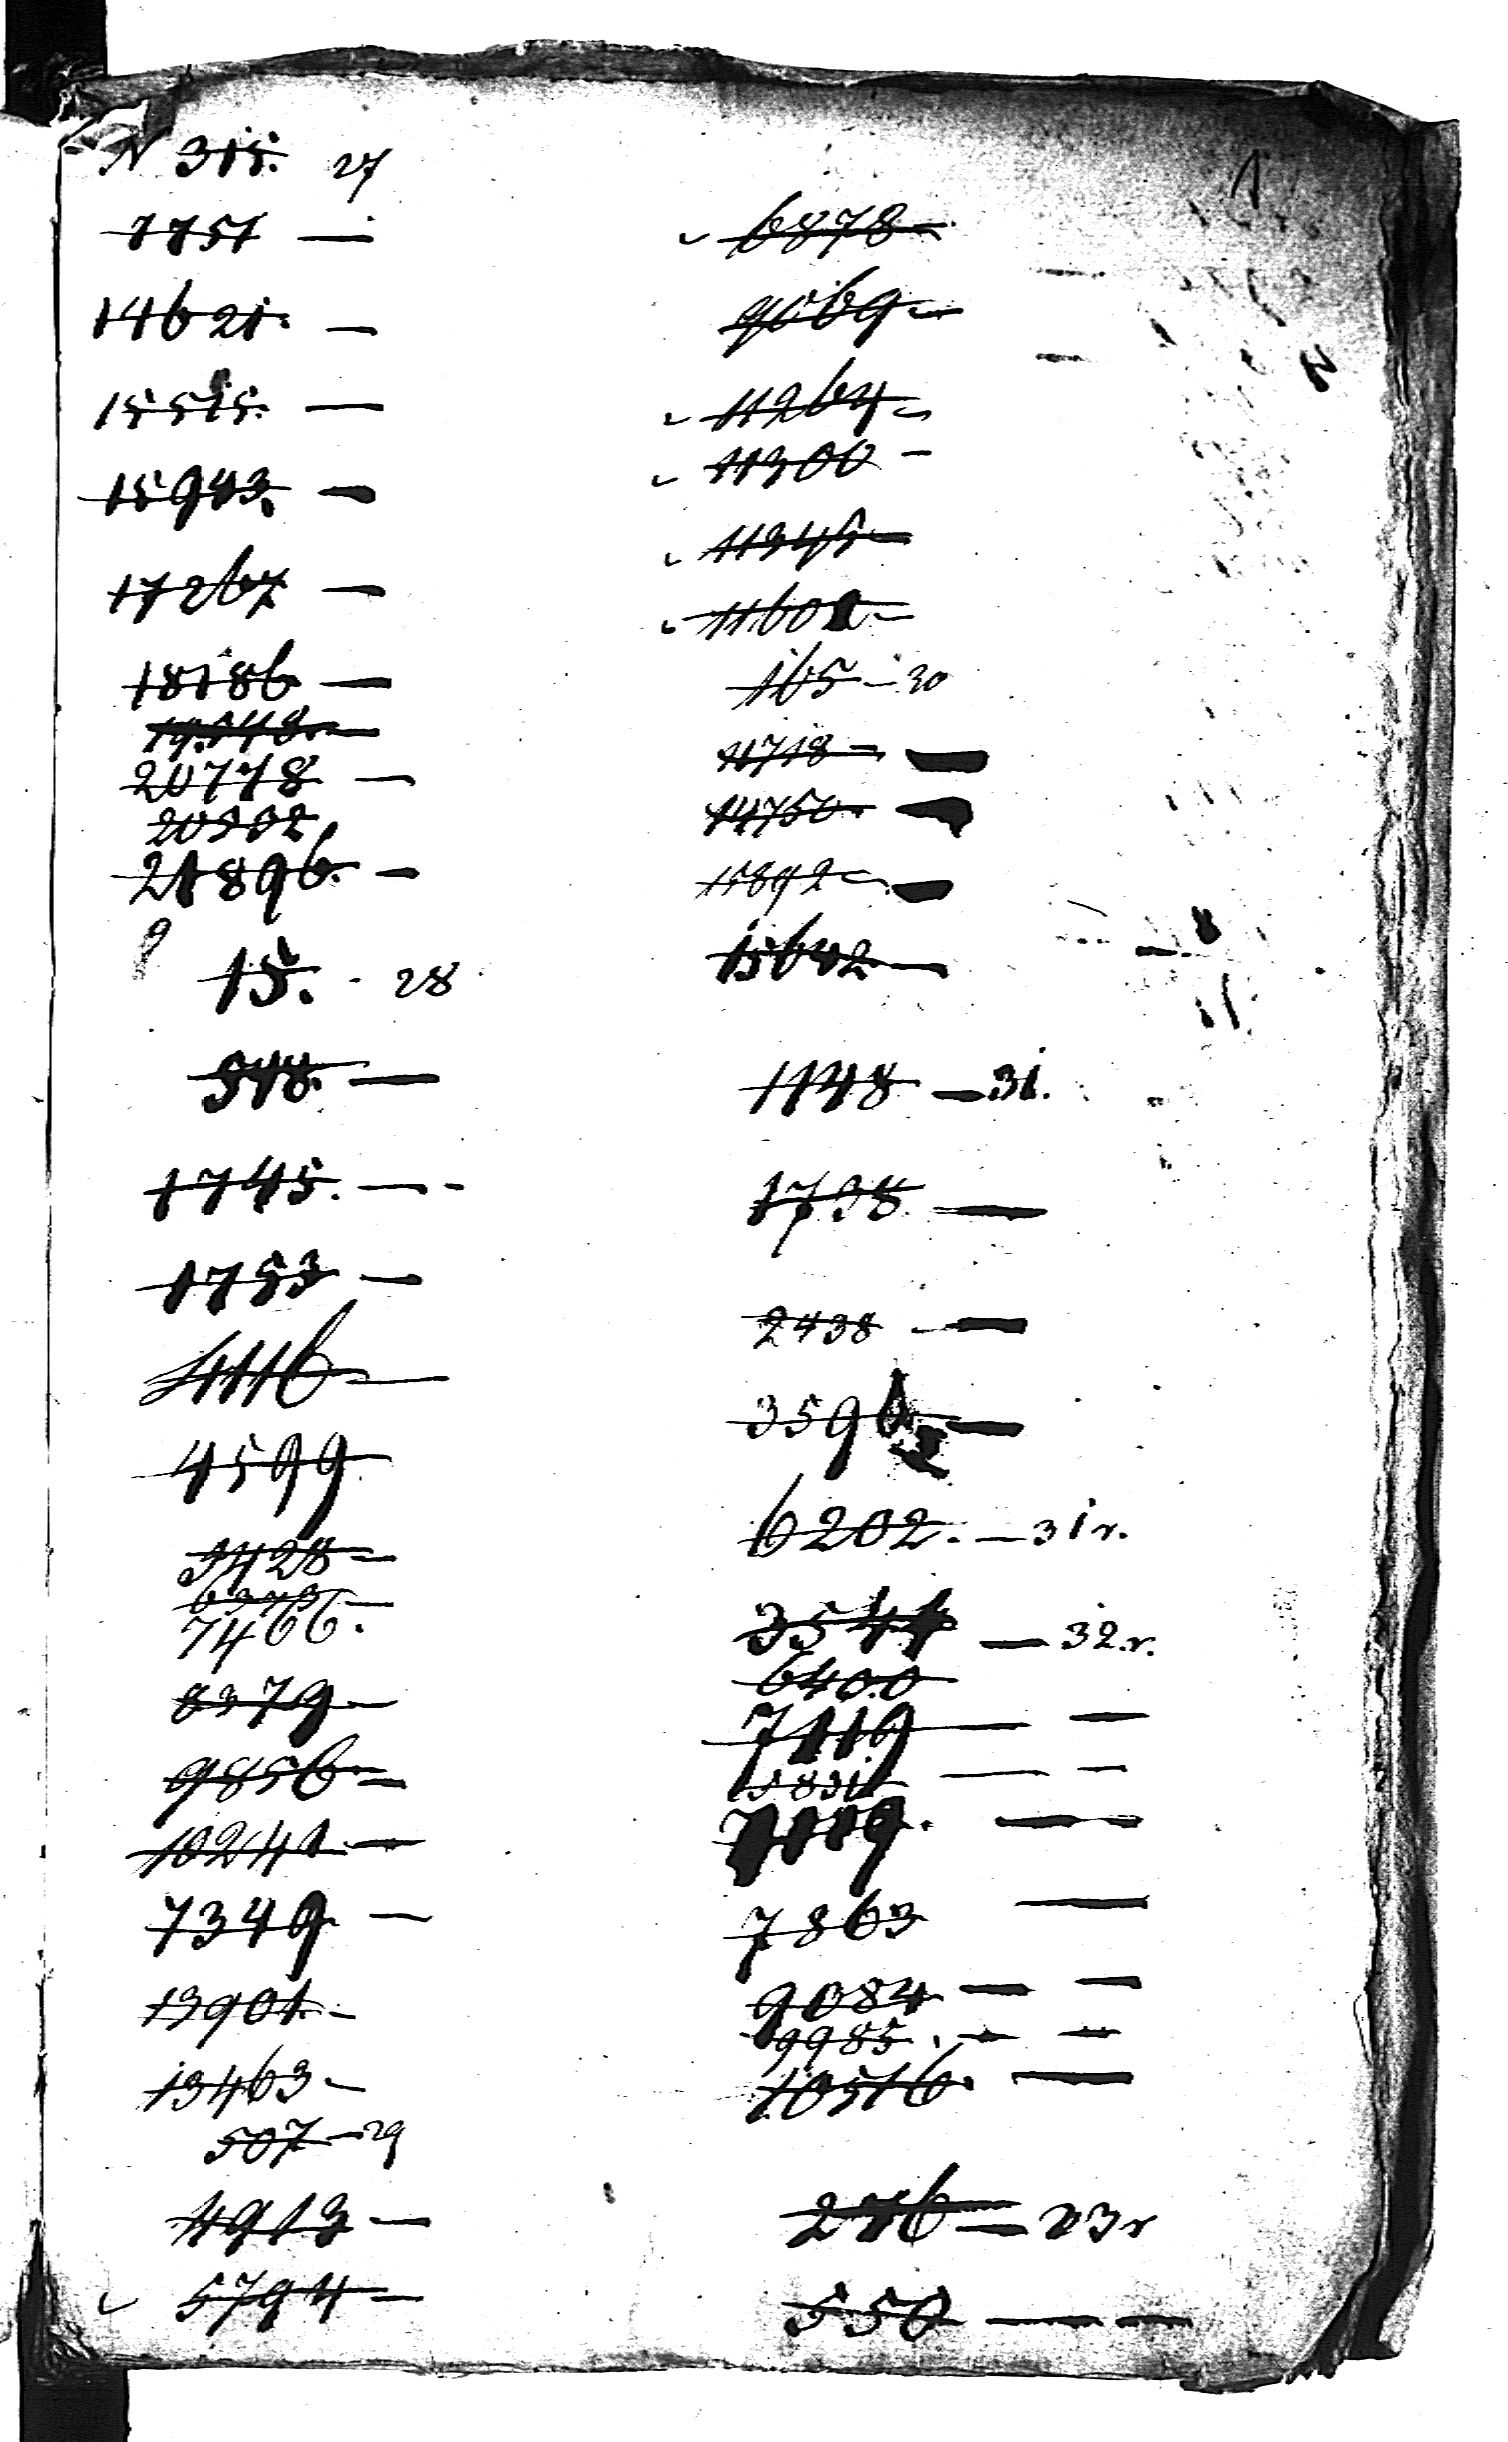 1
N 315. 27
1751 —
14621. —
15515. —
15943. —
17267 —
18186 —
19548 —
20778 —
20992
21896. —
9
15. - 28
948. —
1745. — -
1753 —
4116 —
4599
3428 —
6373 —
7466.
8379 —
9856 —
10241. —
7349. —
13901. —
13463 —
507 — 29
4913 —
5794 —
6878 —
9069 —
11264 —
11300 —
11345 —
165 — 30
11718 —
14750. —
15892 —
15642 —
1148 — 31.
1738 —
2438 —
3596 —
6202. — 31r.
3544 — 32.r.
6400
7119 — —
7863 —
9084 — —
9985. — —
10516. —
276 — 23r
550 — —